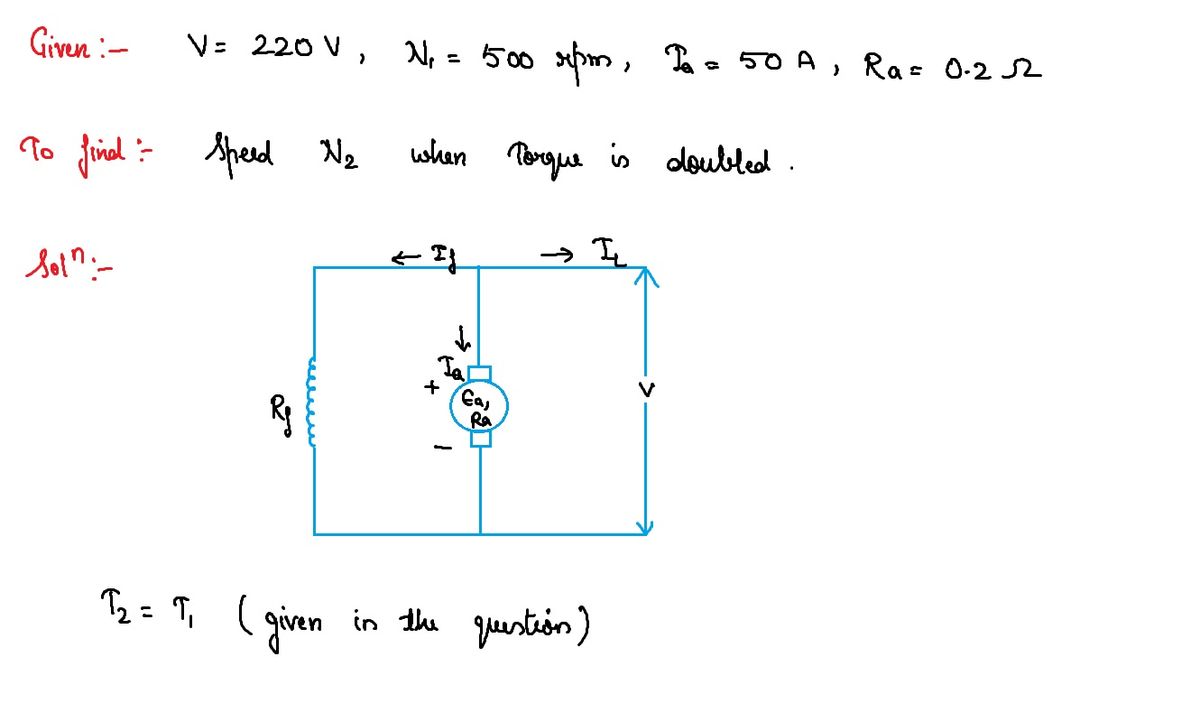 Given :- V = 220 V, N₁ = 500 rpm, Ia = 50 A, Ra = 0.2 Ω
To find :- Speed N₂ when Torque is doubled.
Solⁿ :-
← If → IL
↓
Ia
+
Ea,
Ra
-
Rf
V
T₂ = T₁ (given in the question)